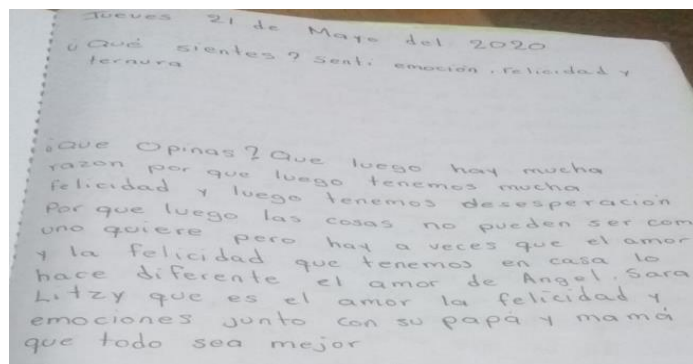 Jueves 21 de Mayo del 2020
¿Qué sientes? Sentí emoción, felicidad y
ternura
¿Que Opinas? Que luego hay mucha
razon por que luego tenemos mucha
felicidad y luego tenemos desesperación
Por que luego las cosas no pueden ser com
uno quiere pero hay a veces que el amor
y la felicidad que tenemos en casa lo
hace diferente el amor de Angel, Sara
Litzy que es el amor la felicidad y
emociones junto con su papá y mamá
que todo sea mejor